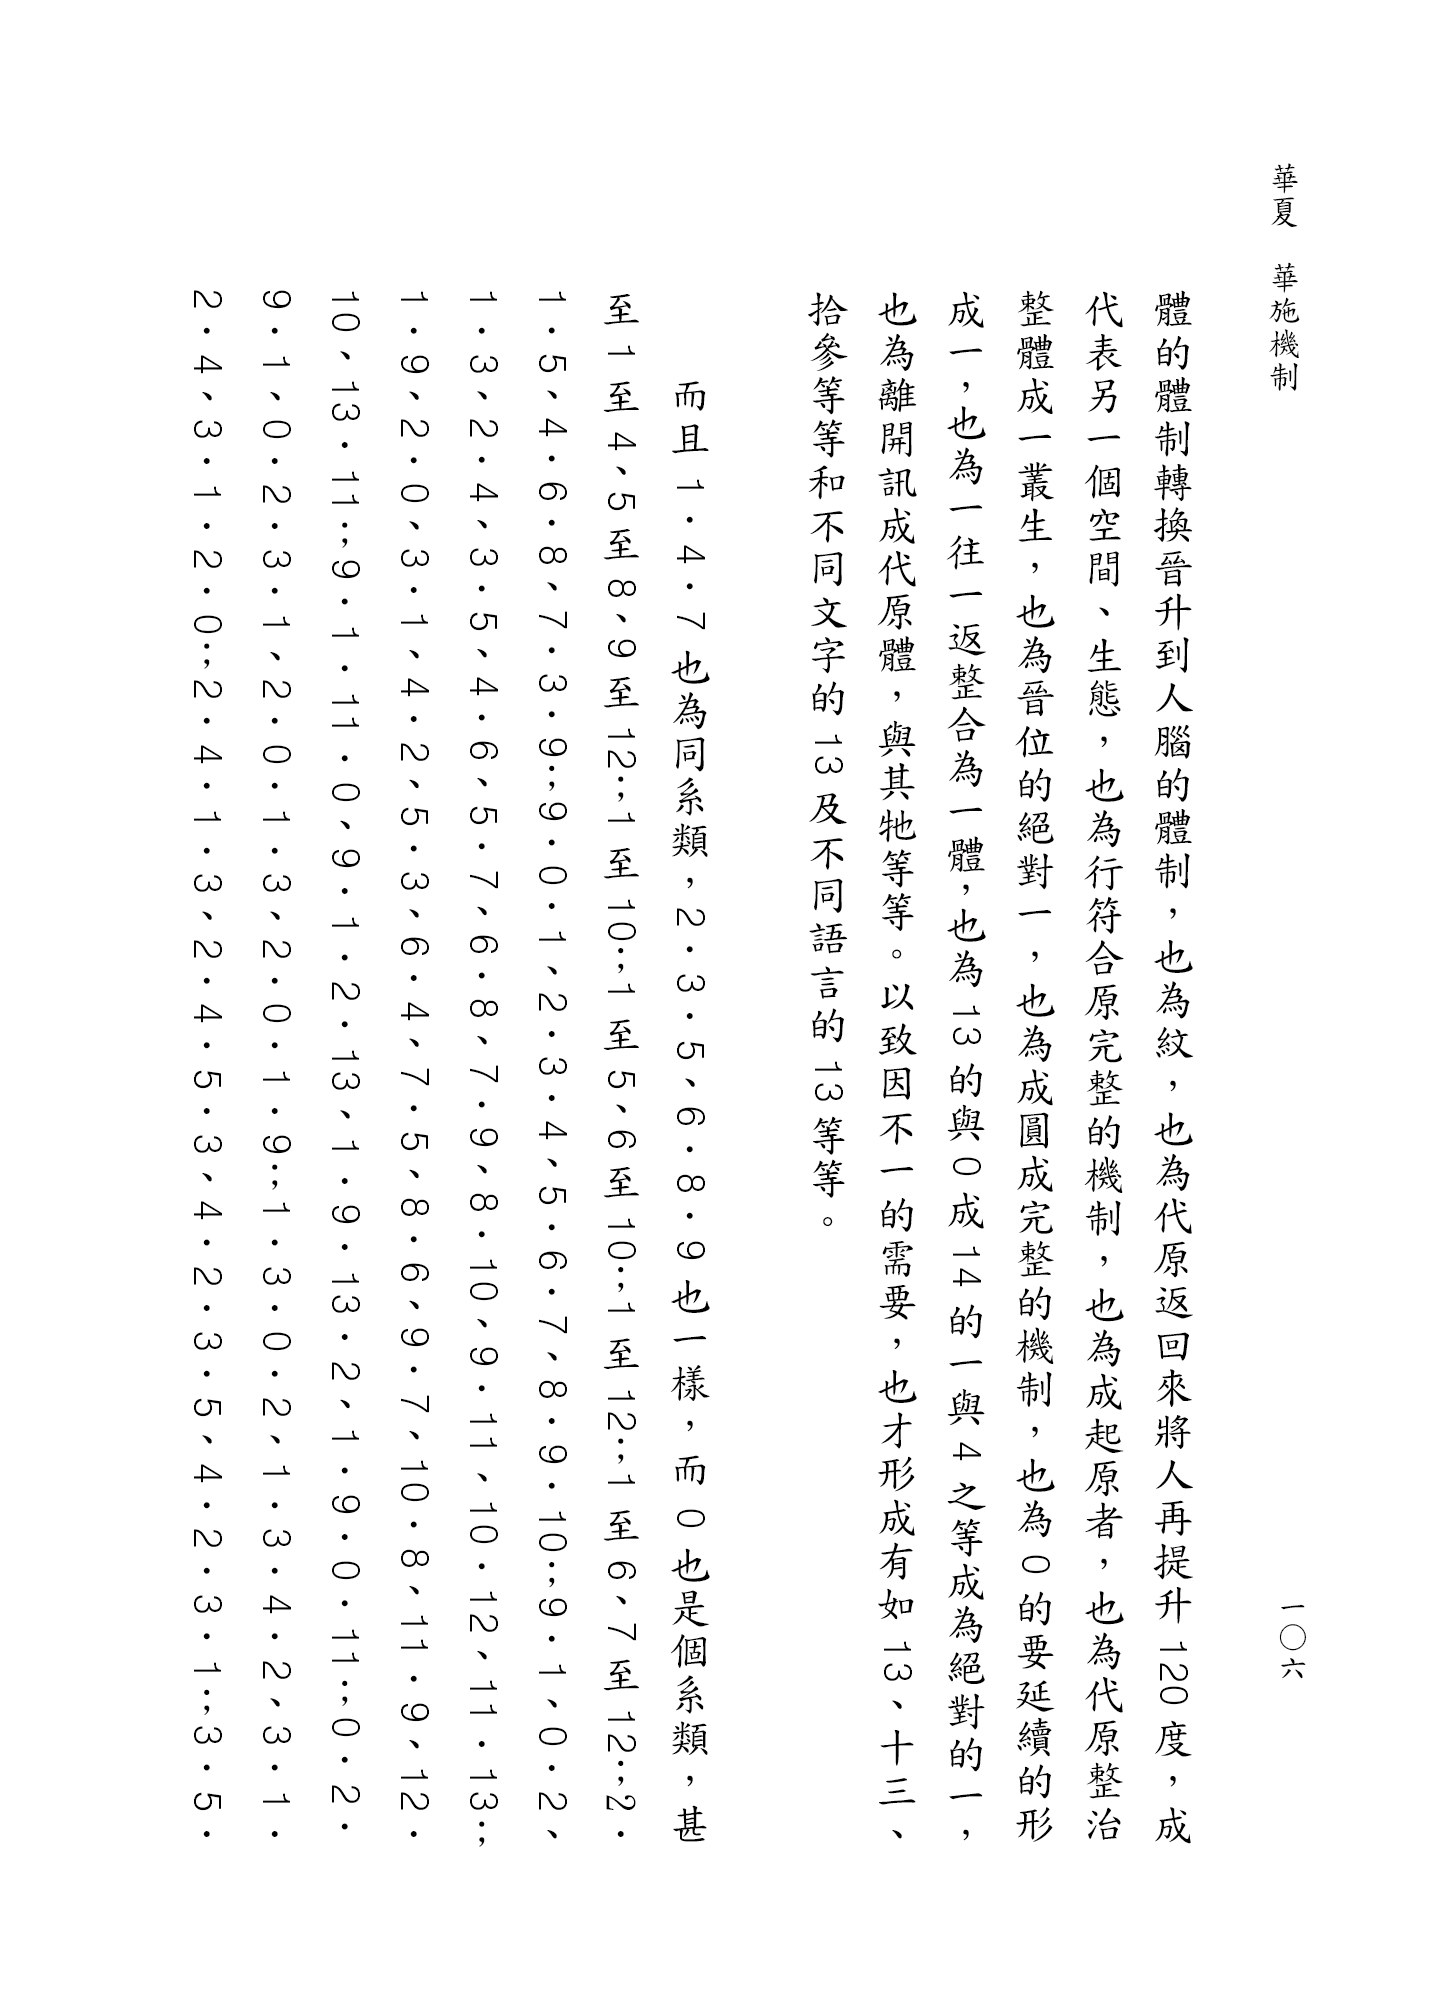 華夏　華施機制
一〇六
體的體制轉換晉升到人腦的體制，也為紋，也為代原返回來將人再提升120度，成
代表另一個空間、生態，也為行符合原完整的機制，也為成起原者，也為代原整治
整體成一叢生，也為晉位的絕對一，也為成圓成完整的機制，也為0的要延續的形
成一，也為一往一返整合為一體，也為13的與0成14的一與4之等成為絕對的一，
也為離開訊成代原體，與其牠等等。以致因不一的需要，也才形成有如13、十三、
拾參等等和不同文字的13及不同語言的13等等。
而且1．4．7也為同系類，2．3．5、6．8．9也一樣，而0也是個系類，甚
至1至4、5至8、9至12；1至10；1至5、6至10；1至12；1至6、7至12；2．
1．5、4．6．8、7．3．9；9．0．1、2．3．4、5．6．7、8．9．10；9．1、0．2、
1．3、2．4、3．5、4．6、5．7、6．8、7．9、8．10、9．11、10．12、11．13；
1．9、2．0、3．1、4．2、5．3、6．4、7．5、8．6、9．7、10．8、11．9、12．
10、13．11；9．1．11．0、9．1．2．13、1．9．13．2、1．9．0．11；0．2．
9．1、0．2．3．1、2．0．1．3、2．0．1．9；1．3．0．2、1．3．4．2、3．1．
2．4、3．1．2．0；2．4．1．3、2．4．5．3、4．2．3．5、4．2．3．1；3．5．